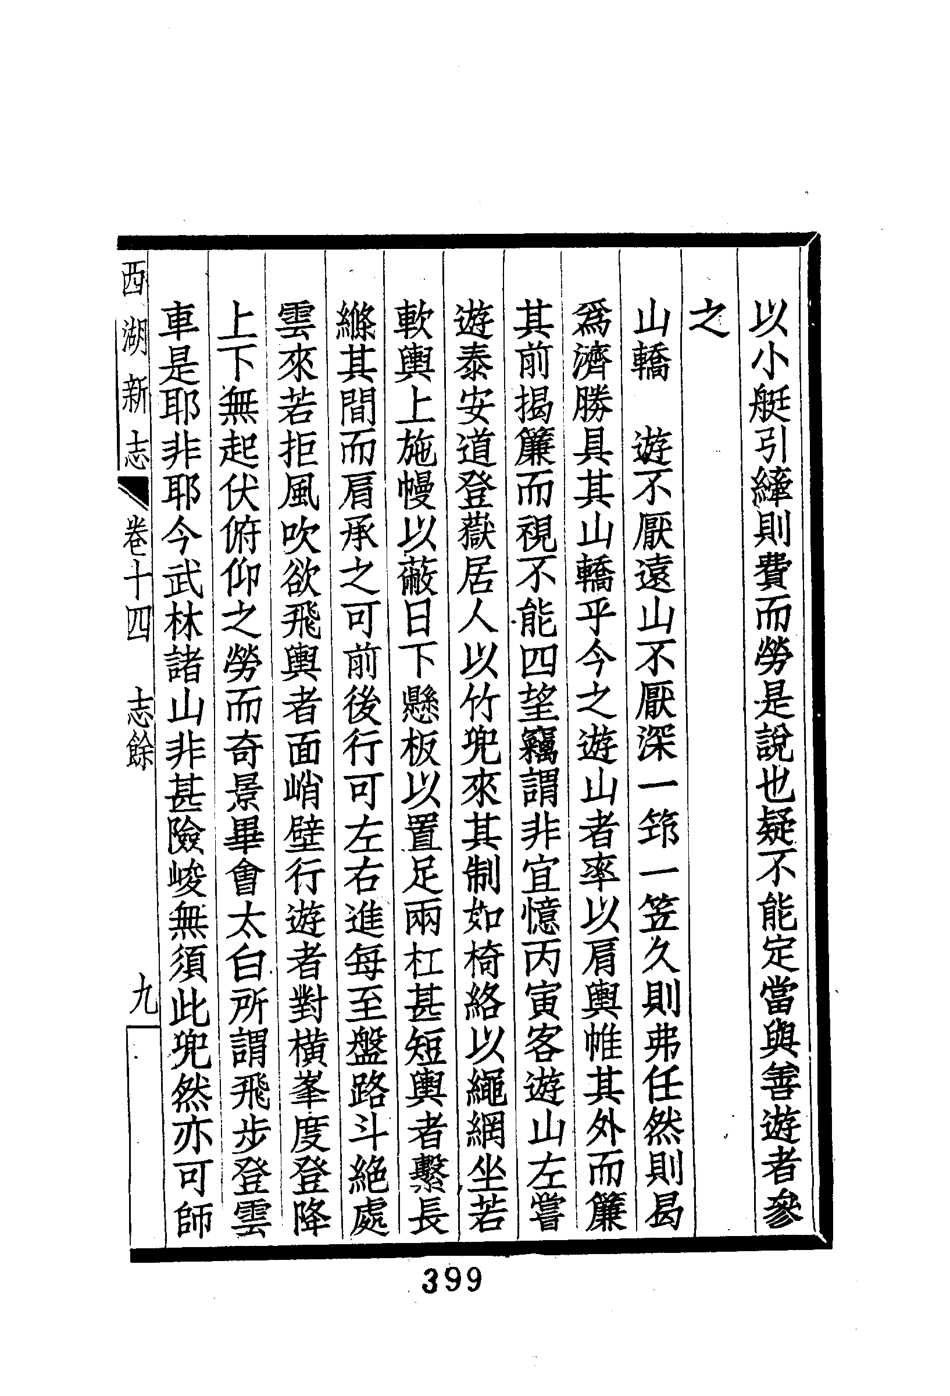 以小艇引縴則費而勞是說也疑不能定當與善遊者參
之
山轎　遊不厭遠山不厭深一筇一笠久則弗任然則曷
爲濟勝具其山轎乎今之遊山者率以肩輿帷其外而簾
其前揭簾而視不能四望竊謂非宜憶丙寅客遊山左嘗
遊泰安道登嶽居人以竹兜來其制如椅絡以繩網坐若
軟輿上施幔以蔽日下懸板以置足兩杠甚短輿者繫長
縧其間而肩承之可前後行可左右進每至盤路斗絕處
雲來若拒風吹欲飛輿者面峭壁行遊者對橫峯度登降
上下無起伏俯仰之勞而奇景畢會太白所謂飛步登雲
車是耶非耶今武林諸山非甚險峻無須此兜然亦可師
西湖新志　卷十四　志餘　九
399